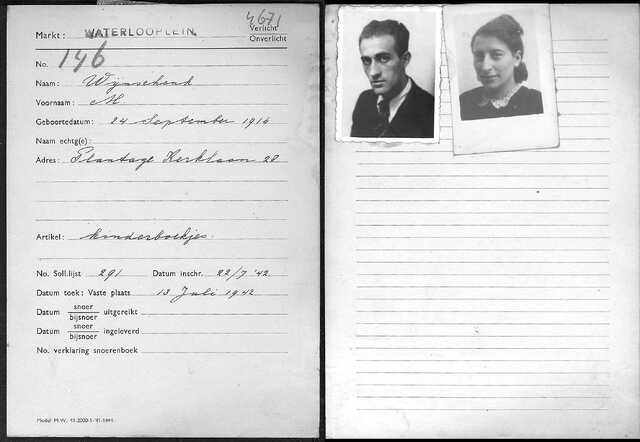 4671
Markt: WATERLOOPLEIN.
Verlicht
Onverlicht
No. 146
Naam: Wijnschenk
Voornaam: M.
Geboortedatum: 24 September 1916
Naam echtg(e):
Adres: Plantage Kerklaan 28
Artikel: kinderboekjes.
No. Soll.lijst 291 Datum inschr. 22/7 '42
Datum toek: Vaste plaats 13 Juli 1942
Datum snoer bijsnoer uitgereikt
Datum snoer bijsnoer ingeleverd
No. verklaring snoerenboek